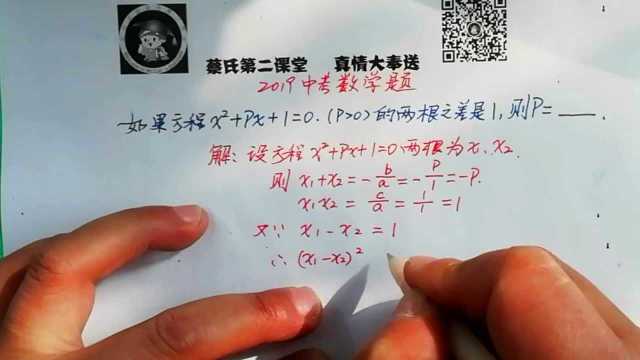 蔡氏第二课堂 真情大奉送
2019中考数学题
如果方程x²+Px+1=0.(P>0)的两根之差是1,则P=____.
解:设方程x²+Px+1=0两根为x₁、x₂.
则 x₁+x₂=-b/a=-P/1=-P.
x₁x₂=c/a=1/1=1
又∵ x₁-x₂=1
∴(x₁-x₂)²